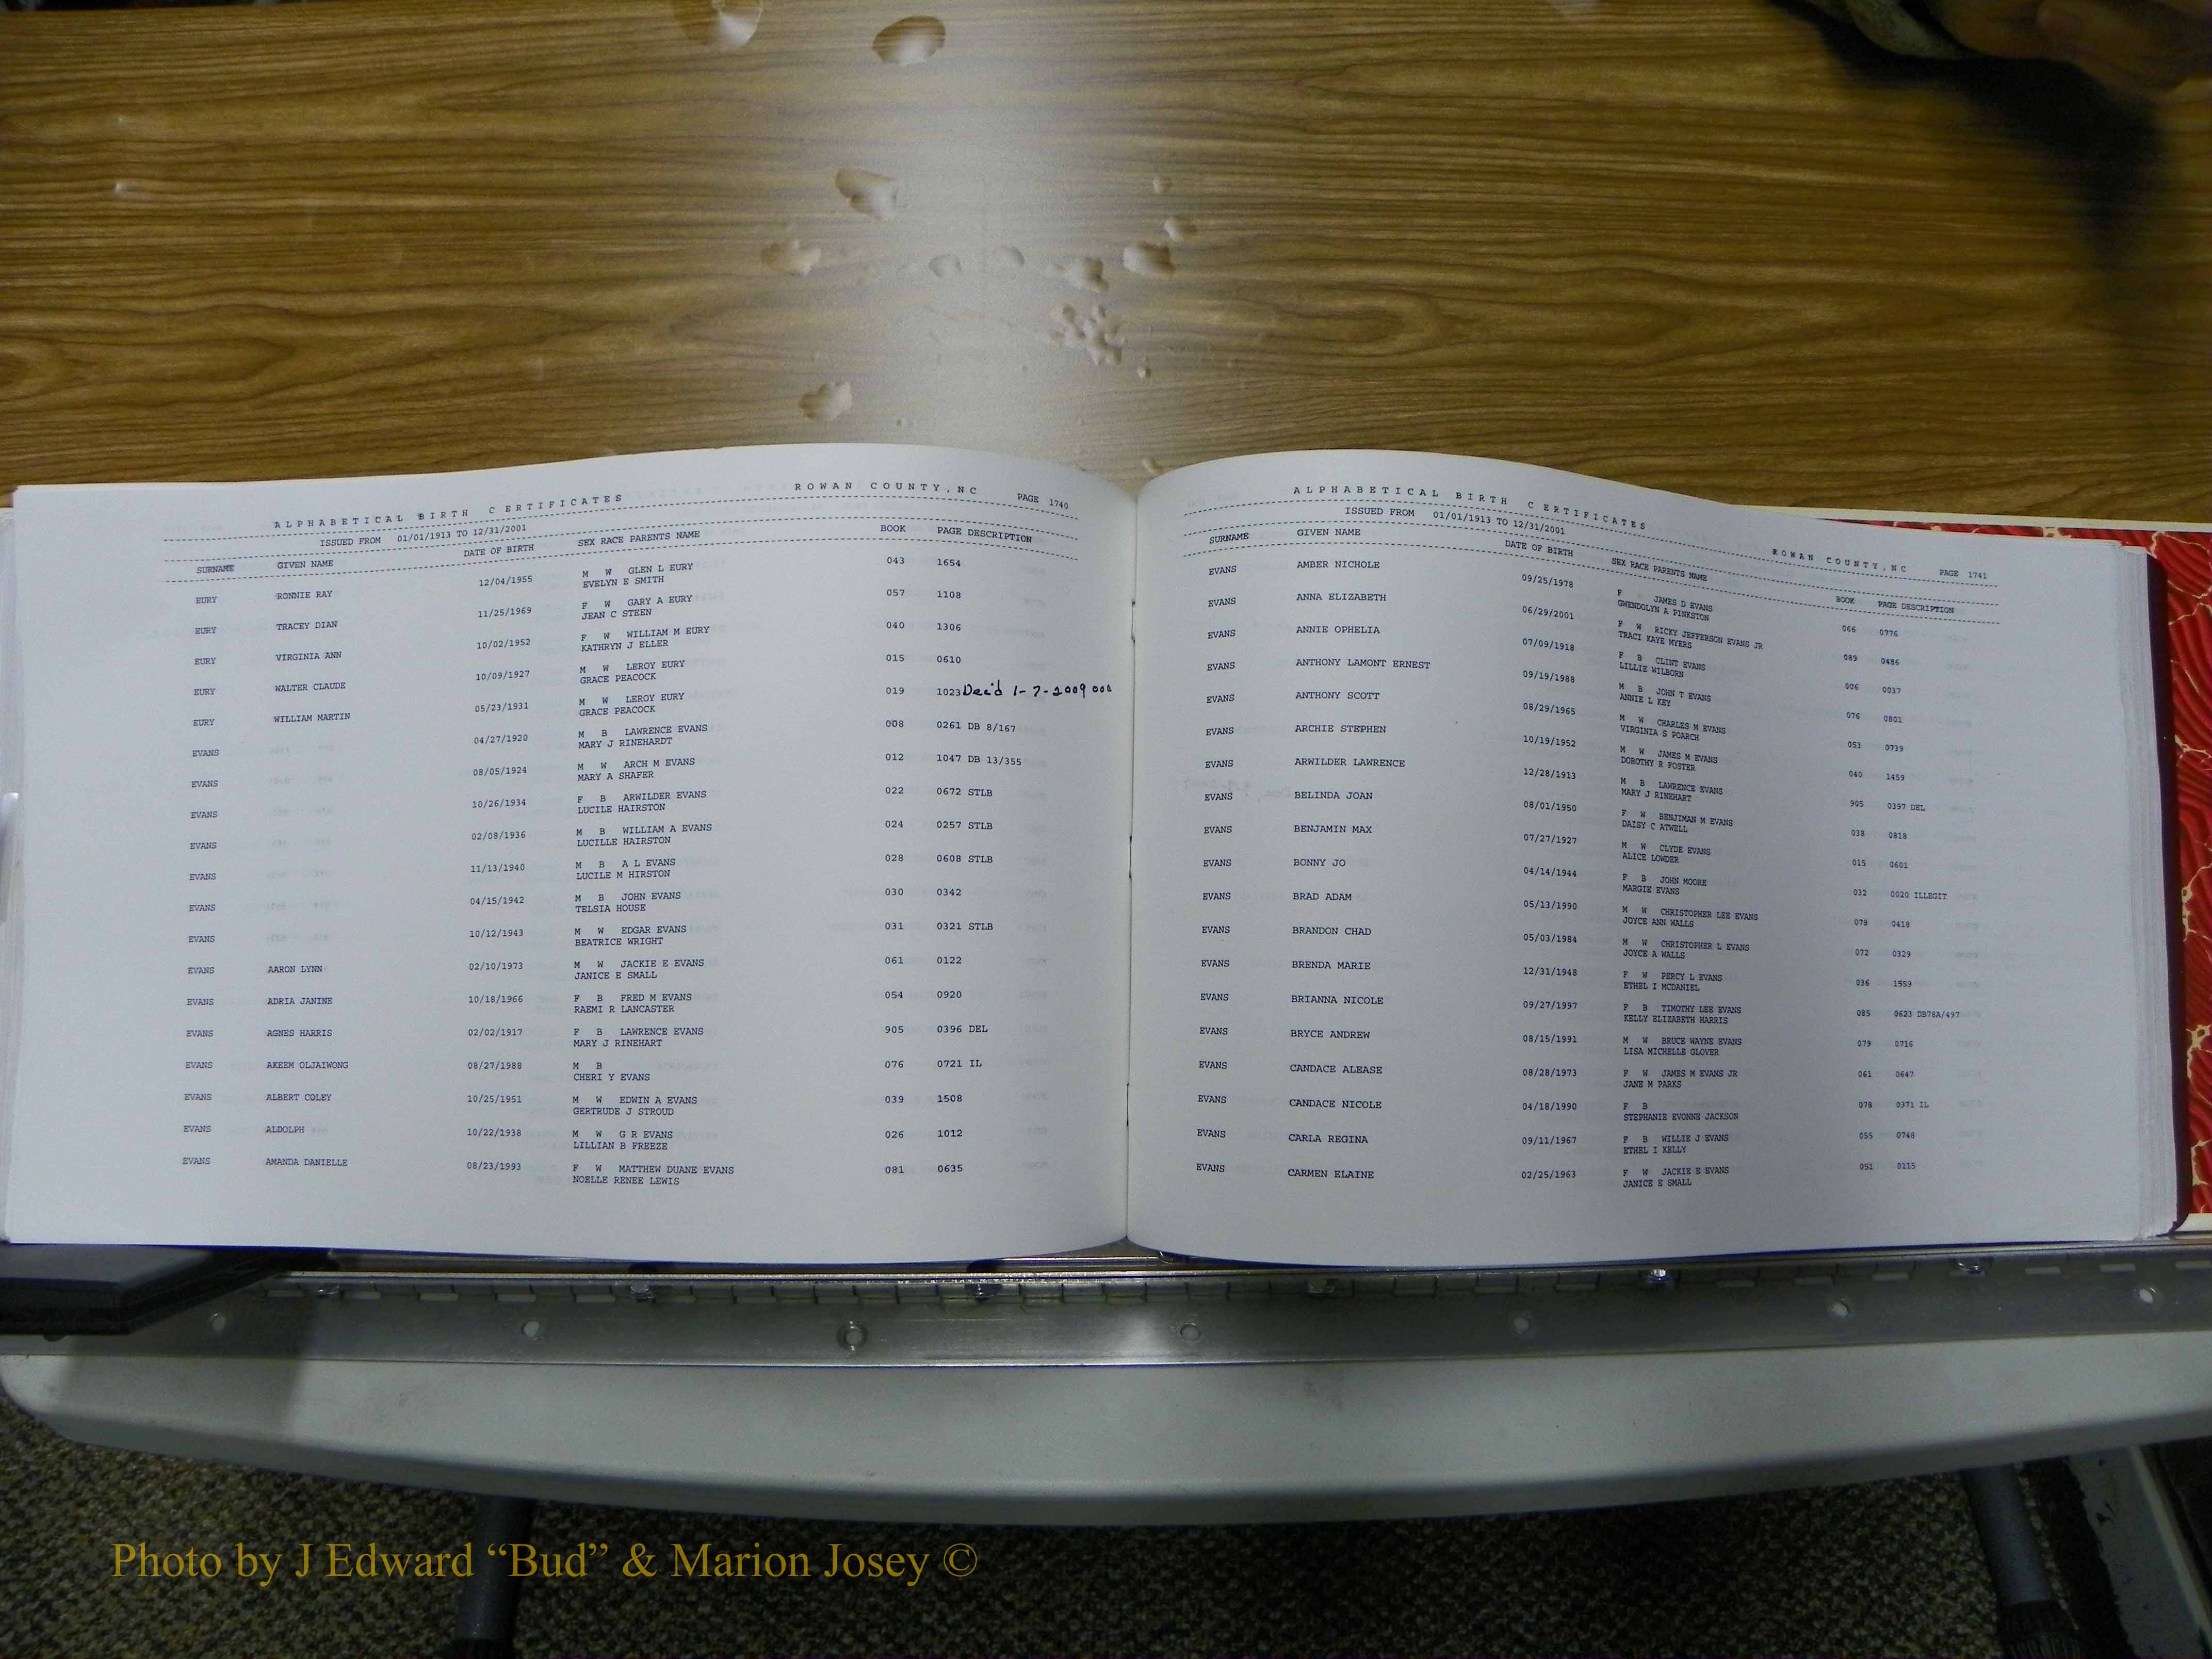 ALPHABETICAL BIRTH CERTIFICATES ROWAN COUNTY, NC PAGE 1740
ISSUED FROM 01/01/1913 TO 12/31/2001
SURNAME GIVEN NAME DATE OF BIRTH SEX RACE PARENTS NAME BOOK PAGE DESCRIPTION
EURY RONNIE RAY 12/04/1955 M W GLEN L EURY 043 1654
EVELYN E SMITH
EURY TRACEY DIAN 11/25/1969 F W GARY A EURY 057 1108
JEAN C STEEN
EURY VIRGINIA ANN 10/02/1952 F W WILLIAM M EURY 040 1306
KATHRYN J ELLER
EURY WALTER CLAUDE 10/09/1927 M W LEROY EURY 015 0610
GRACE PEACOCK
EURY WILLIAM MARTIN 05/23/1931 M W LEROY EURY 019 1023 Dec'd 1-7-2009
GRACE PEACOCK
EVANS 04/27/1920 M B LAWRENCE EVANS 008 0261 DB 8/167
MARY J RINEHARDT
EVANS 08/05/1924 M W ARCH M EVANS 012 1047 DB 13/355
MARY A SHAFER
EVANS 10/26/1934 F B ARWILDER EVANS 022 0672 STLB
LUCILE HAIRSTON
EVANS 02/08/1936 M B WILLIAM A EVANS 024 0257 STLB
LUCILLE HAIRSTON
EVANS 11/13/1940 M B A L EVANS 028 0608 STLB
LUCILE M HIRSTON
EVANS 04/15/1942 M B JOHN EVANS 030 0342
TELSIA HOUSE
EVANS 10/12/1943 M W EDGAR EVANS 031 0321 STLB
BEATRICE WRIGHT
EVANS AARON LYNN 02/10/1973 M W JACKIE E EVANS 061 0122
JANICE E SMALL
EVANS ADRIA JANINE 10/18/1966 F B FRED M EVANS 054 0920
RAEMI R LANCASTER
EVANS AGNES HARRIS 02/02/1917 F B LAWRENCE EVANS 905 0396 DEL
MARY J RINEHART
EVANS AKEEM OLJAIWONG 08/27/1988 M B 076 0721 IL
CHERI Y EVANS
EVANS ALBERT COLEY 10/25/1951 M W EDWIN A EVANS 039 1508
GERTRUDE J STROUD
EVANS ALDOLPH 10/22/1938 M W G R EVANS 026 1012
LILLIAN B FREEZE
EVANS AMANDA DANIELLE 08/23/1993 F W MATTHEW DUANE EVANS 081 0635
NOELLE RENEE LEWIS
ALPHABETICAL BIRTH CERTIFICATES ROWAN COUNTY, NC PAGE 1741
ISSUED FROM 01/01/1913 TO 12/31/2001
SURNAME GIVEN NAME DATE OF BIRTH SEX RACE PARENTS NAME BOOK PAGE DESCRIPTION
EVANS AMBER NICHOLE 09/25/1978 F JAMES D EVANS 066 0776
GWENDOLYN A PINKSTON
EVANS ANNA ELIZABETH 06/29/2001 F W RICKY JEFFERSON EVANS JR 089 0486
TRACI KAYE MYERS
EVANS ANNIE OPHELIA 07/09/1918 F B CLINT EVANS 006 0037
LILLIE WILBORN
EVANS ANTHONY LAMONT ERNEST 09/19/1988 M B JOHN T EVANS 076 0801
ANNIE L KEY
EVANS ANTHONY SCOTT 08/29/1965 M W CHARLES M EVANS 053 0739
VIRGINIA S POARCH
EVANS ARCHIE STEPHEN 10/19/1952 M W JAMES M EVANS 040 1459
DOROTHY R FOSTER
EVANS ARWILDER LAWRENCE 12/28/1913 M B LAWRENCE EVANS 905 0397 DEL
MARY J RINEHART
EVANS BELINDA JOAN 08/01/1950 F W BENJIMAN M EVANS 038 0818
DAISY C ATWELL
EVANS BENJAMIN MAX 07/27/1927 M W CLYDE EVANS 015 0601
ALICE LOWDER
EVANS BONNY JO 04/14/1944 F B JOHN MOORE 032 0020 ILLEGIT
MARGIE EVANS
EVANS BRAD ADAM 05/13/1990 M W CHRISTOPHER LEE EVANS 078 0418
JOYCE ANN WALLS
EVANS BRANDON CHAD 05/03/1984 M W CHRISTOPHER L EVANS 072 0329
JOYCE A WALLS
EVANS BRENDA MARIE 12/31/1948 F W PERCY L EVANS 036 1559
ETHEL I MCDANIEL
EVANS BRIANNA NICOLE 09/27/1997 F B TIMOTHY LEE EVANS 085 0623 DB78A/497
KELLY ELIZABETH HARRIS
EVANS BRYCE ANDREW 08/15/1991 M W BRUCE WAYNE EVANS 079 0716
LISA MICHELLE GLOVER
EVANS CANDACE ALEASE 08/28/1973 F W JAMES M EVANS JR 061 0647
JANE M PARKS
EVANS CANDACE NICOLE 04/18/1990 F B 078 0371 IL
STEPHANIE EVONNE JACKSON
EVANS CARLA REGINA 09/11/1967 F B WILLIE J EVANS 055 0748
ETHEL I KELLY
EVANS CARMEN ELAINE 02/25/1963 F W JACKIE E EVANS 051 0115
JANICE E SMALL
Photo by J Edward “Bud” & Marion Josey ©